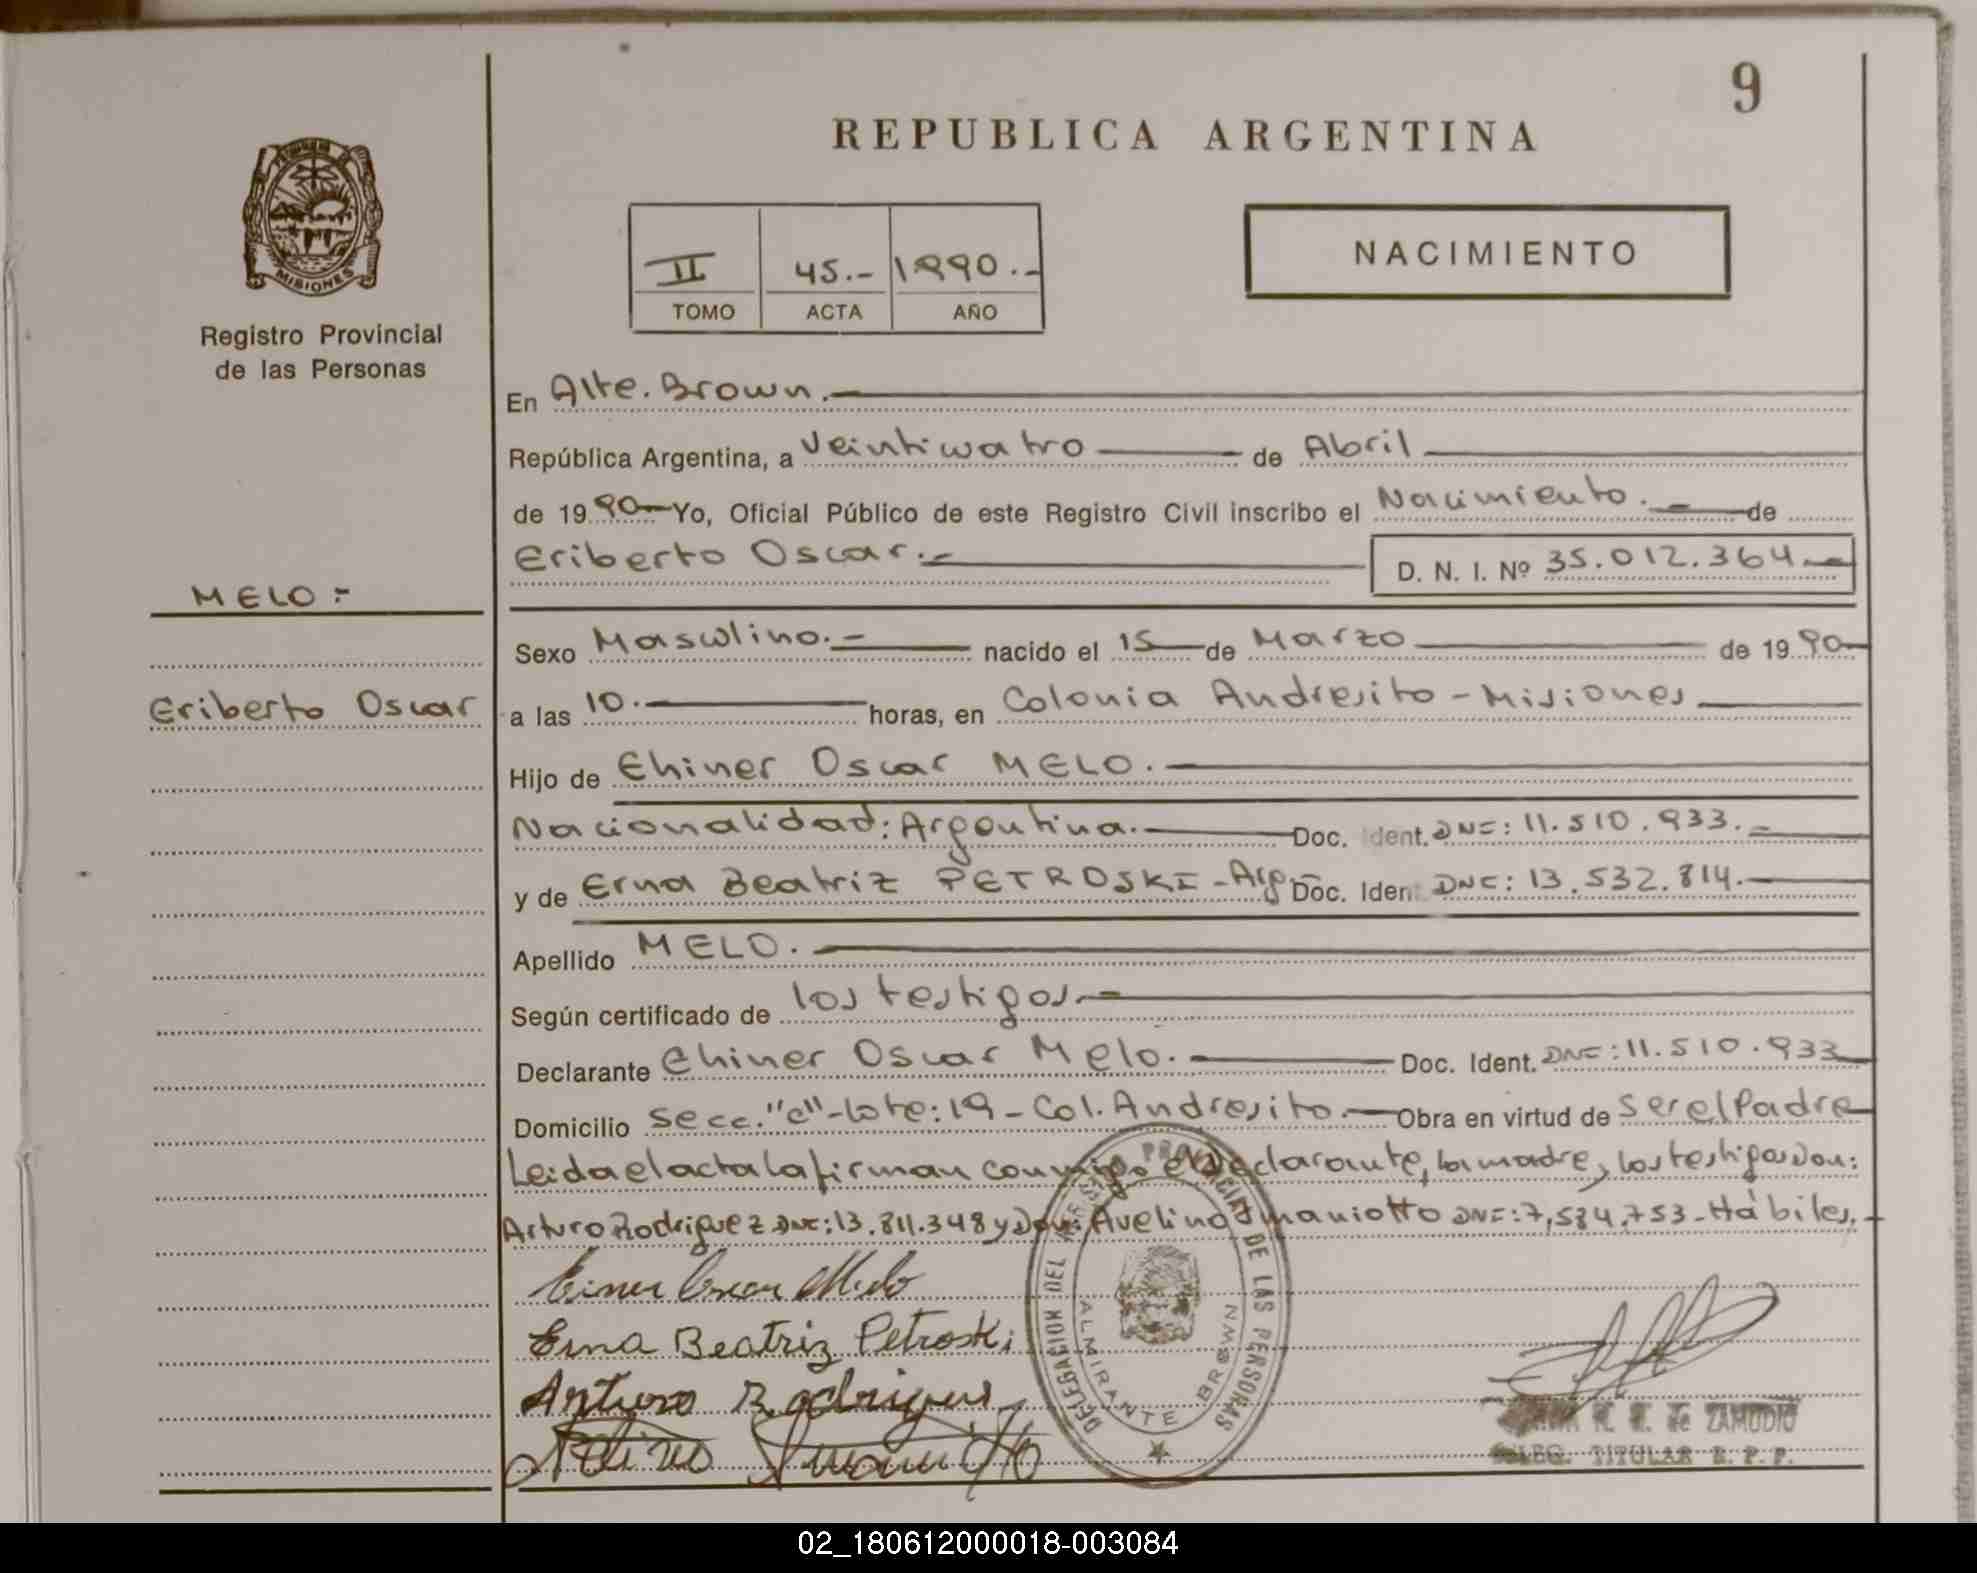 9
REPUBLICA ARGENTINA
MISIONES
Registro Provincial
de las Personas
II 45.- 1990.-
TOMO ACTA AÑO
NACIMIENTO
En Alte. Brown.
República Argentina, a Veinticuatro de Abril
de 1990 Yo, Oficial Público de este Registro Civil inscribo el Nacimiento.- de
Eriberto Oscar.- D. N. I. Nº 35.012.364.-
MELO:-
Eriberto Oscar
Sexo Masculino.- nacido el 15 de Marzo de 1990
a las 10. horas, en Colonia Andresito - Misiones
Hijo de Ehiner Oscar MELO.
Nacionalidad: Argentina. Doc. Ident. DNI: 11.510.933.-
y de Erna Beatriz PETROSKI - Arg. Doc. Iden DNI: 13.532.814.
Apellido MELO.
Según certificado de los testigos.-
Declarante Ehiner Oscar Melo. Doc. Ident. DNI: 11.510.933
Domicilio Secc. "C" - Lote: 19 - Col. Andresito. Obra en virtud de Ser el Padre
Leida el acta la firman conmigo el Declarante, la madre, los testigos Don:
Arturo Rodriguez DNI: 13.811.348 y Don: Avelino Smaniotto DNI: 7,584,753 - Hábiles.
Einer Oscar Melo
Erna Beatriz Petroski
Arturo Rodriguez
DELEGACION DEL REGISTRO PROVINCIAL DE LAS PERSONAS
ALMIRANTE BROWN
de ZAMUDIO
DELEG. TITULAR R. P. P.
02_180612000018-003084